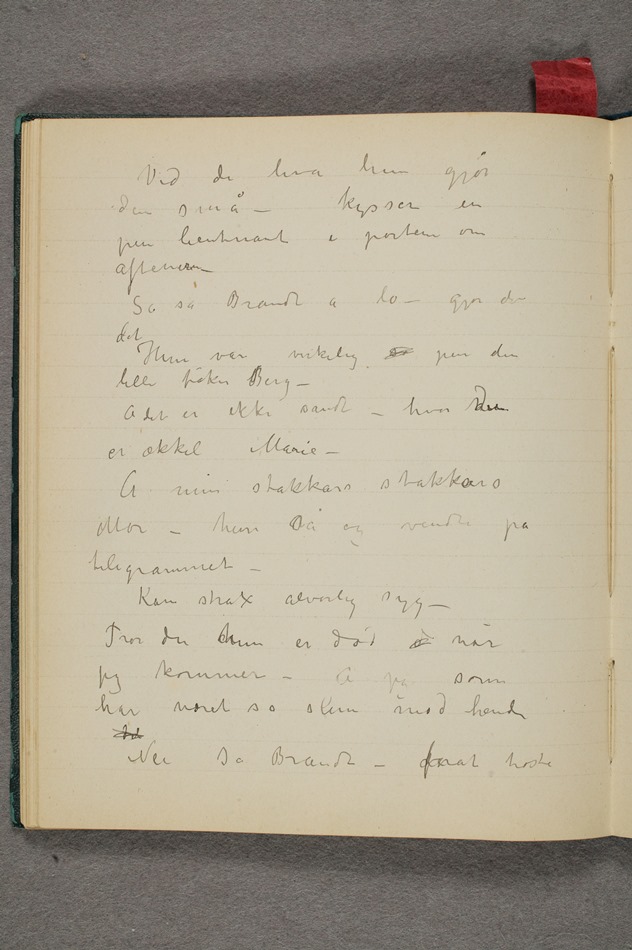 Ved du hva hun gjør
den små – kysser en
pen lieutnant i porten om
aftenen
Sa så Brandt a lo – gjør du
det
Hun var virkelig pen den
lille frøken Berg –
A det er ikke sandt – hvor du
er ækkel Marie –
A min stakkars stakkars
Mor – hun lå og vendte på
telegrammet –
Kom strax alvorlig syg –
Tror du hun er død når
jeg kommer – A jeg som
har været så slem mod hende
Nei sa Brandt – forat trøste